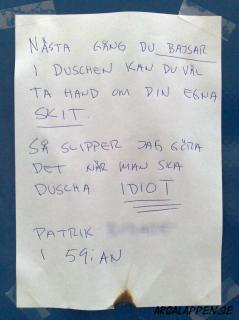 NÄSTA GÅNG DU BAJSAR
I DUSCHEN KAN DU VÄL
TA HAND OM DIN EGNA
SKIT.
SÅ SLIPPER JAG GÖRA
DET NÄR MAN SKA
DUSCHA. IDIOT
PATRIK
I 59:AN
ARGALAPPEN.SE